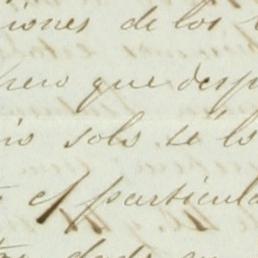 iones de los
pero que desp
io solo, se lo
el particula